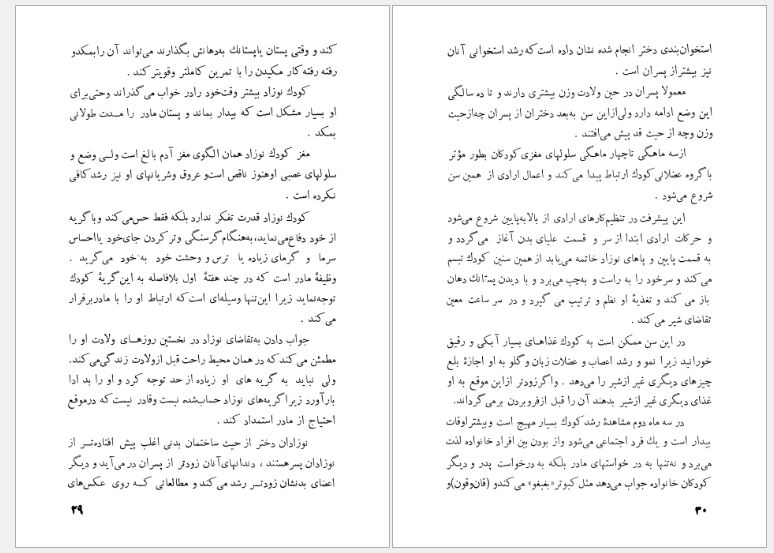 کند و وقتی پستان یاپستانك به‌دهانش بگذارند می‌تواند آن رابمکدو
رفته رفته کار مکیدن را با تمرین کاملتر وقویتر کند .
کودك نوزاد بیشتر وقت‌خود رادر خواب می‌گذراند وحتی‌برای
او بسیار مشکل است که بیدار بماند و پستان مادر را مــدت طولانی
بمکد .
مغز کودك نوزاد همان الگوی مغز آدم بالغ است ولــی وضع و
سلولهای عصبی اوهنوز ناقص است‌و عروق وشریانهای او نیز رشدکافی
نکرده است .
کودك نوزاد قدرت تفکر ندارد بلکه فقط حس‌می‌کند وباگریه
از خود دفاع‌می‌نماید،به‌هنگام گرسنگی وتر کردن جای‌خود یااحساس
سرما و گرمای زیاده یا ترس و وحشت خود به‌خود می‌گرید .
وظیفهٔ مادر است که در چند هفتهٔ اول بلافاصله به این‌گریهٔ کودك
توجه‌نماید زیرا این‌تنها وسیله‌ای است‌که ارتباط او را با مادربرقرار
می‌کند .
جواب دادن به‌تقاضای نوزاد در نخستین روزهــای ولادت او را
مطمئن می‌کند که در همان محیط راحت قبل ازولادت زندگی‌می‌کند.
ولی نباید به گریه های او زیاده از حد توجه کرد و او را بد ادا
بارآورد زیراگریه‌های نوزاد حساب‌شده نیست وقادر نیست که درموقع
احتیاج از مادر استمداد کند .
نوزادان دختر از حیث ساختمان بدنی اغلب پیش افتاده‌تــر از
نوزادان پسرهستند ، دندانهای‌آنان زودتر از پسران در می‌آید و دیگر
اعضای بدنشان زودتــر رشد می‌کند و مطالعاتی کــه روی عکس‌های
۲۹
استخوان‌بندی دختر انجام شده نشان داده است‌که رشد استخوانی آنان
نیز بیشتراز پسران است .
معمولا پسران در حین ولادت وزن بیشتری دارند و تا ده سالگی
این وضع ادامه دارد ولی‌ازاین سن به‌بعد دختران از پسران چه‌ازحیث
وزن وچه از حیث قد پیش می‌افتند .
ازسه ماهگی تاچهار ماهگی سلولهای مغزی‌کودکان بطور مؤثر
باگروه عضلانی‌کودك ارتباط پیدا می‌کند و اعمال ارادی از همین سن
شروع می‌شود .
این پیشرفت در تنظیم‌کارهای ارادی از بالابه‌پایین شروع می‌شود
و حرکات ارادی ابتدا از سر و قسمت علیای بدن آغاز می‌گردد و
به قسمت پایین و پاهای نوزاد خاتمه می‌یابد از همین سنین کودك تبسم
می‌کند و سرخود را به راست و به‌چپ می‌برد و با دیدن پستانك دهان
باز می کند و تغذیهٔ او نظم و ترتیب می گیرد و در سر ساعت معین
تقاضای شیر می‌کند .
در این سن ممکن است به کودك غذاهــای بسیار آبکی و رقیق
خورانید زیرا نمو و رشد اعصاب و عضلات زبان وگلو به او اجازهٔ بلع
چیزهای دیگری غیر ازشیر را می‌دهد . واگرزودتر ازاین موقع به او
غذای دیگری غیر ازشیر بدهند آن را قبل ازفروبردن برمی‌گرداند.
در سه ماه دوم مشاهدهٔ رشد کودك بسیار مهیج است و بیشتراوقات
بیدار است و یك فرد اجتماعی می‌شود واز بودن بین افراد خانواده لذت
می‌برد و نه‌تنها به در خواستهای مادر بلکه به درخواست پدر و دیگر
کودکان خانواده جواب می‌دهد مثل کبوتر«بغبغو» می‌کندو (قان‌وقون)و
۳۰